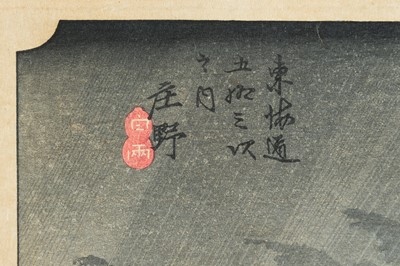 東海道
五拾三次
之内
庄野
白雨